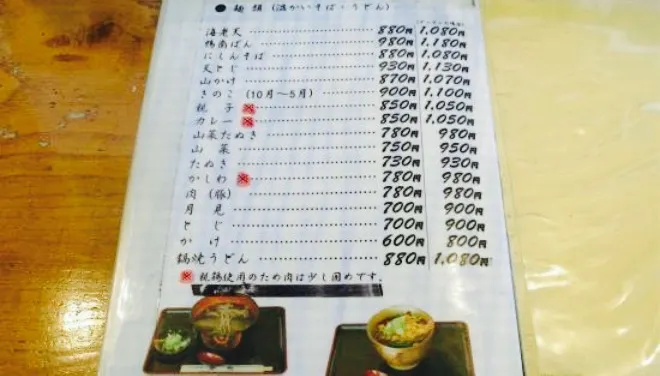 ● 麺類(温かいそば・うどん)
海老天 880円 1,080円
鴨南ばん 980円 1,180円
にしんそば 880円 1,080円
天とじ 930円 1,130円
山かけ 870円 1,070円
きのこ (10月〜5月) 900円 1,100円
親子 ※ 850円 1,050円
カレー ※ 850円 1,050円
山菜たぬき 780円 980円
山菜 750円 950円
たぬき 730円 930円
かしわ ※ 780円 980円
肉(豚) 780円 980円
月見 700円 900円
とじ 700円 900円
かけ 600円 800円
鍋焼うどん 880円 1,080円
※ 親鶏使用のため肉は少し固めです。